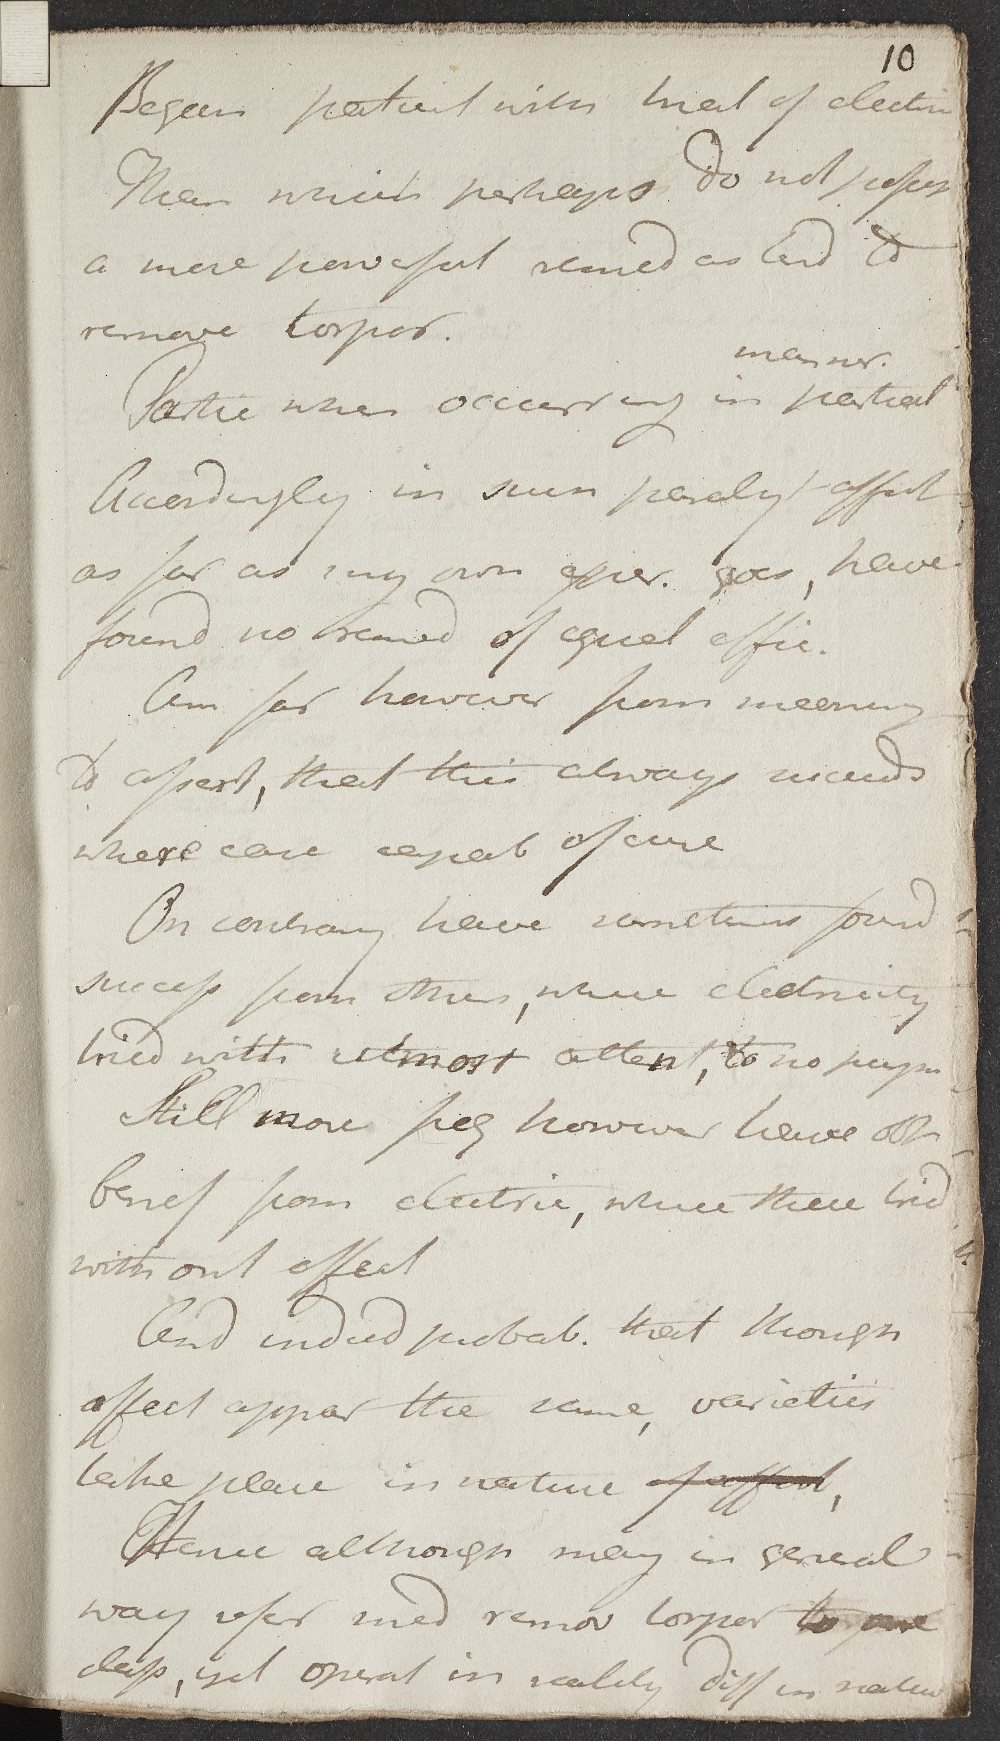 10
Began patient with treat of electri
Than which perhaps do not possess
a more powerful remed as tend to
remove torpor.
manner.
Partic when occurring in partial
Accordingly in such paralyt affect
as far as my own exper. goes, have
found no remed of equal effic.
Am far however from meaning
to assert, that this always succeeds
where case capab of cure
On contrary have sometimes found
success from others, where electricity
tried with utmost attent, to no purpo
Still more freq however have obt
benef from electric, where these tried
without effect
And indeed probab. that though
affect appear the same, varieties
take place in nature of affect,
Hence although may in general
way refer med remov torpor to one
class, yet operat in reality diff in nature